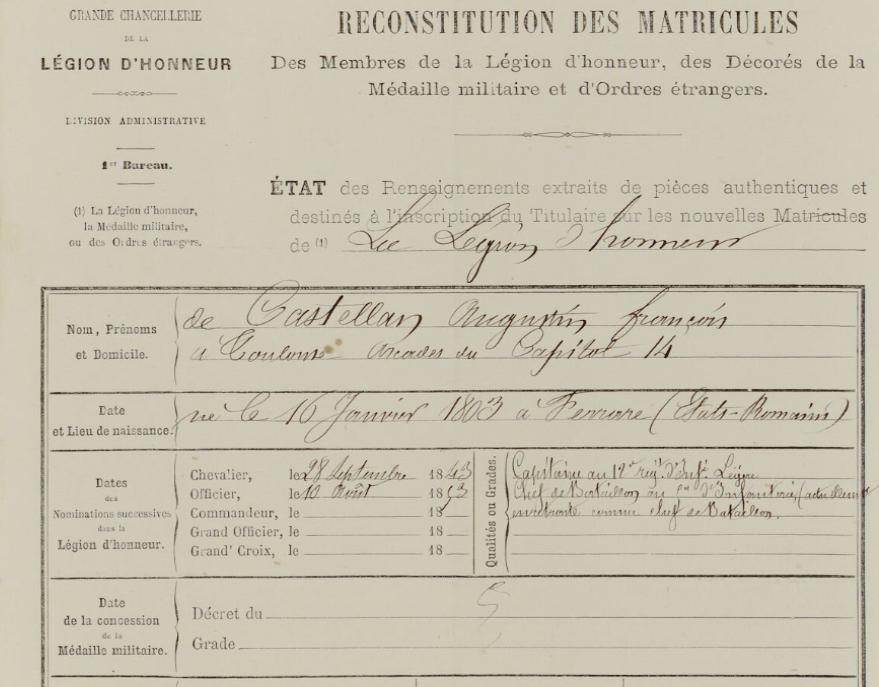 GRANDE CHANCELLERIE
DE LA
LÉGION D'HONNEUR
DIVISION ADMINISTRATIVE
1er Bureau.
(1) La Légion d'honneur,
la Médaille militaire,
ou des Ordres étrangers.
RECONSTITUTION DES MATRICULES
Des Membres de la Légion d'honneur, des Décorés de la
Médaille militaire et d'Ordres étrangers.
ÉTAT des Renseignements extraits de pièces authentiques et
destinés à l'inscription du Titulaire sur les nouvelles Matricules
de (1) La Légion d'honneur
Nom, Prénoms
et Domicile.
de Castellan Augustin françois
à Toulouse Arcades du Capitol 14
Date
et Lieu de naissance.
né le 16 Janvier 1803 à Ferrare (Etats-Romains)
Dates
des
Nominations successives
dans la
Légion d'honneur.
Chevalier, le 28 Septembre 1843
Officier, le 10 Août 1853
Commandeur, le 18
Grand Officier, le 18
Grand' Croix, le 18
Qualités ou Grades.
Capitaine au 12e reg. d'Inf. Légère
Chef de Bataillon au d'Infanterie, (actuellement
en retraite comme chef de Bataillon.
Date
de la concession
de la
Médaille militaire.
Décret du
Grade